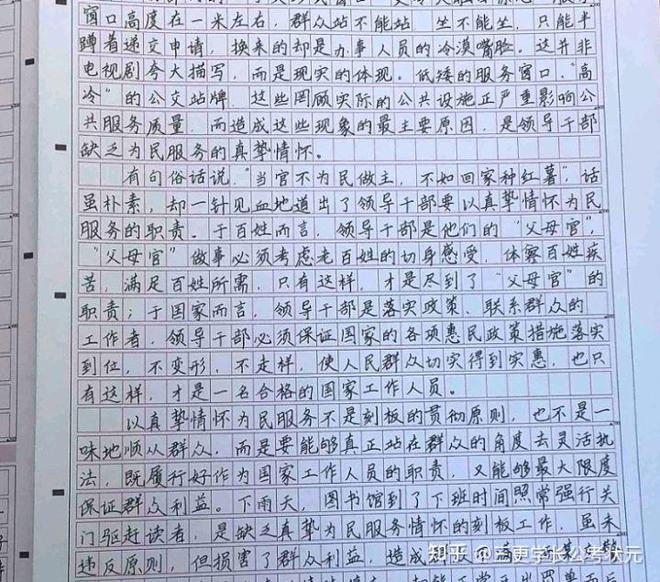 窗口高度在一米左右，群众站不能站，坐不能坐，只能半
蹲着递交申请，换来的却是办事人员的冷漠嘴脸。这并非
电视剧夸大描写，而是现实的体现。低矮的服务窗口，“高
冷”的公交站牌，这些罔顾实际的公共设施正严重影响公
共服务质量，而造成这些现象的最主要原因，是领导干部
缺乏为民服务的真挚情怀。
有句俗话说“当官不为民做主，不如回家种红薯”，话
虽朴素，却一针见血地道出了领导干部要以真挚情怀为民
服务的职责。于百姓而言，领导干部是他们的“父母官”，
“父母官”做事必须考虑老百姓的切身感受，体察百姓疾
苦，满足百姓所需，只有这样，才是尽到了“父母官”的
职责；于国家而言，领导干部是落实政策、联系群众的
工作者，领导干部必须保证国家的各项惠民政策措施落实
到位，不变形，不走样，使人民群众切实得到实惠，也只
有这样，才是一名合格的国家工作人员。
以真挚情怀为民服务不是刻板的贯彻原则，也不是一
味地顺从群众，而是要能够真正站在群众的角度去灵活执
法，既履行好作为国家工作人员的职责，又能够最大限度
保证群众利益。下雨天，图书馆到了下班时间照常强行关
门驱赶读者，是缺乏真挚为民服务情怀的刻板工作，虽未
违反原则，但损害了群众利益，造成
知乎 @三更学长公考状元